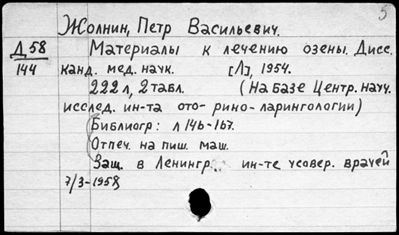 5
Жолнин, Петр Васильевич.
Д 58 Материалы к лечению озены. Дисс.
144 канд. мед. наук. [Л], 1954.
222 л, 2 табл. (На базе Центр. науч.
исслед. ин-та ото-рино-ларингологии)
Библиогр: л 146-167.
Отпеч. на пиш. маш.
Защ. в Ленингр. ин-те усовер. врачей
7/3-1958